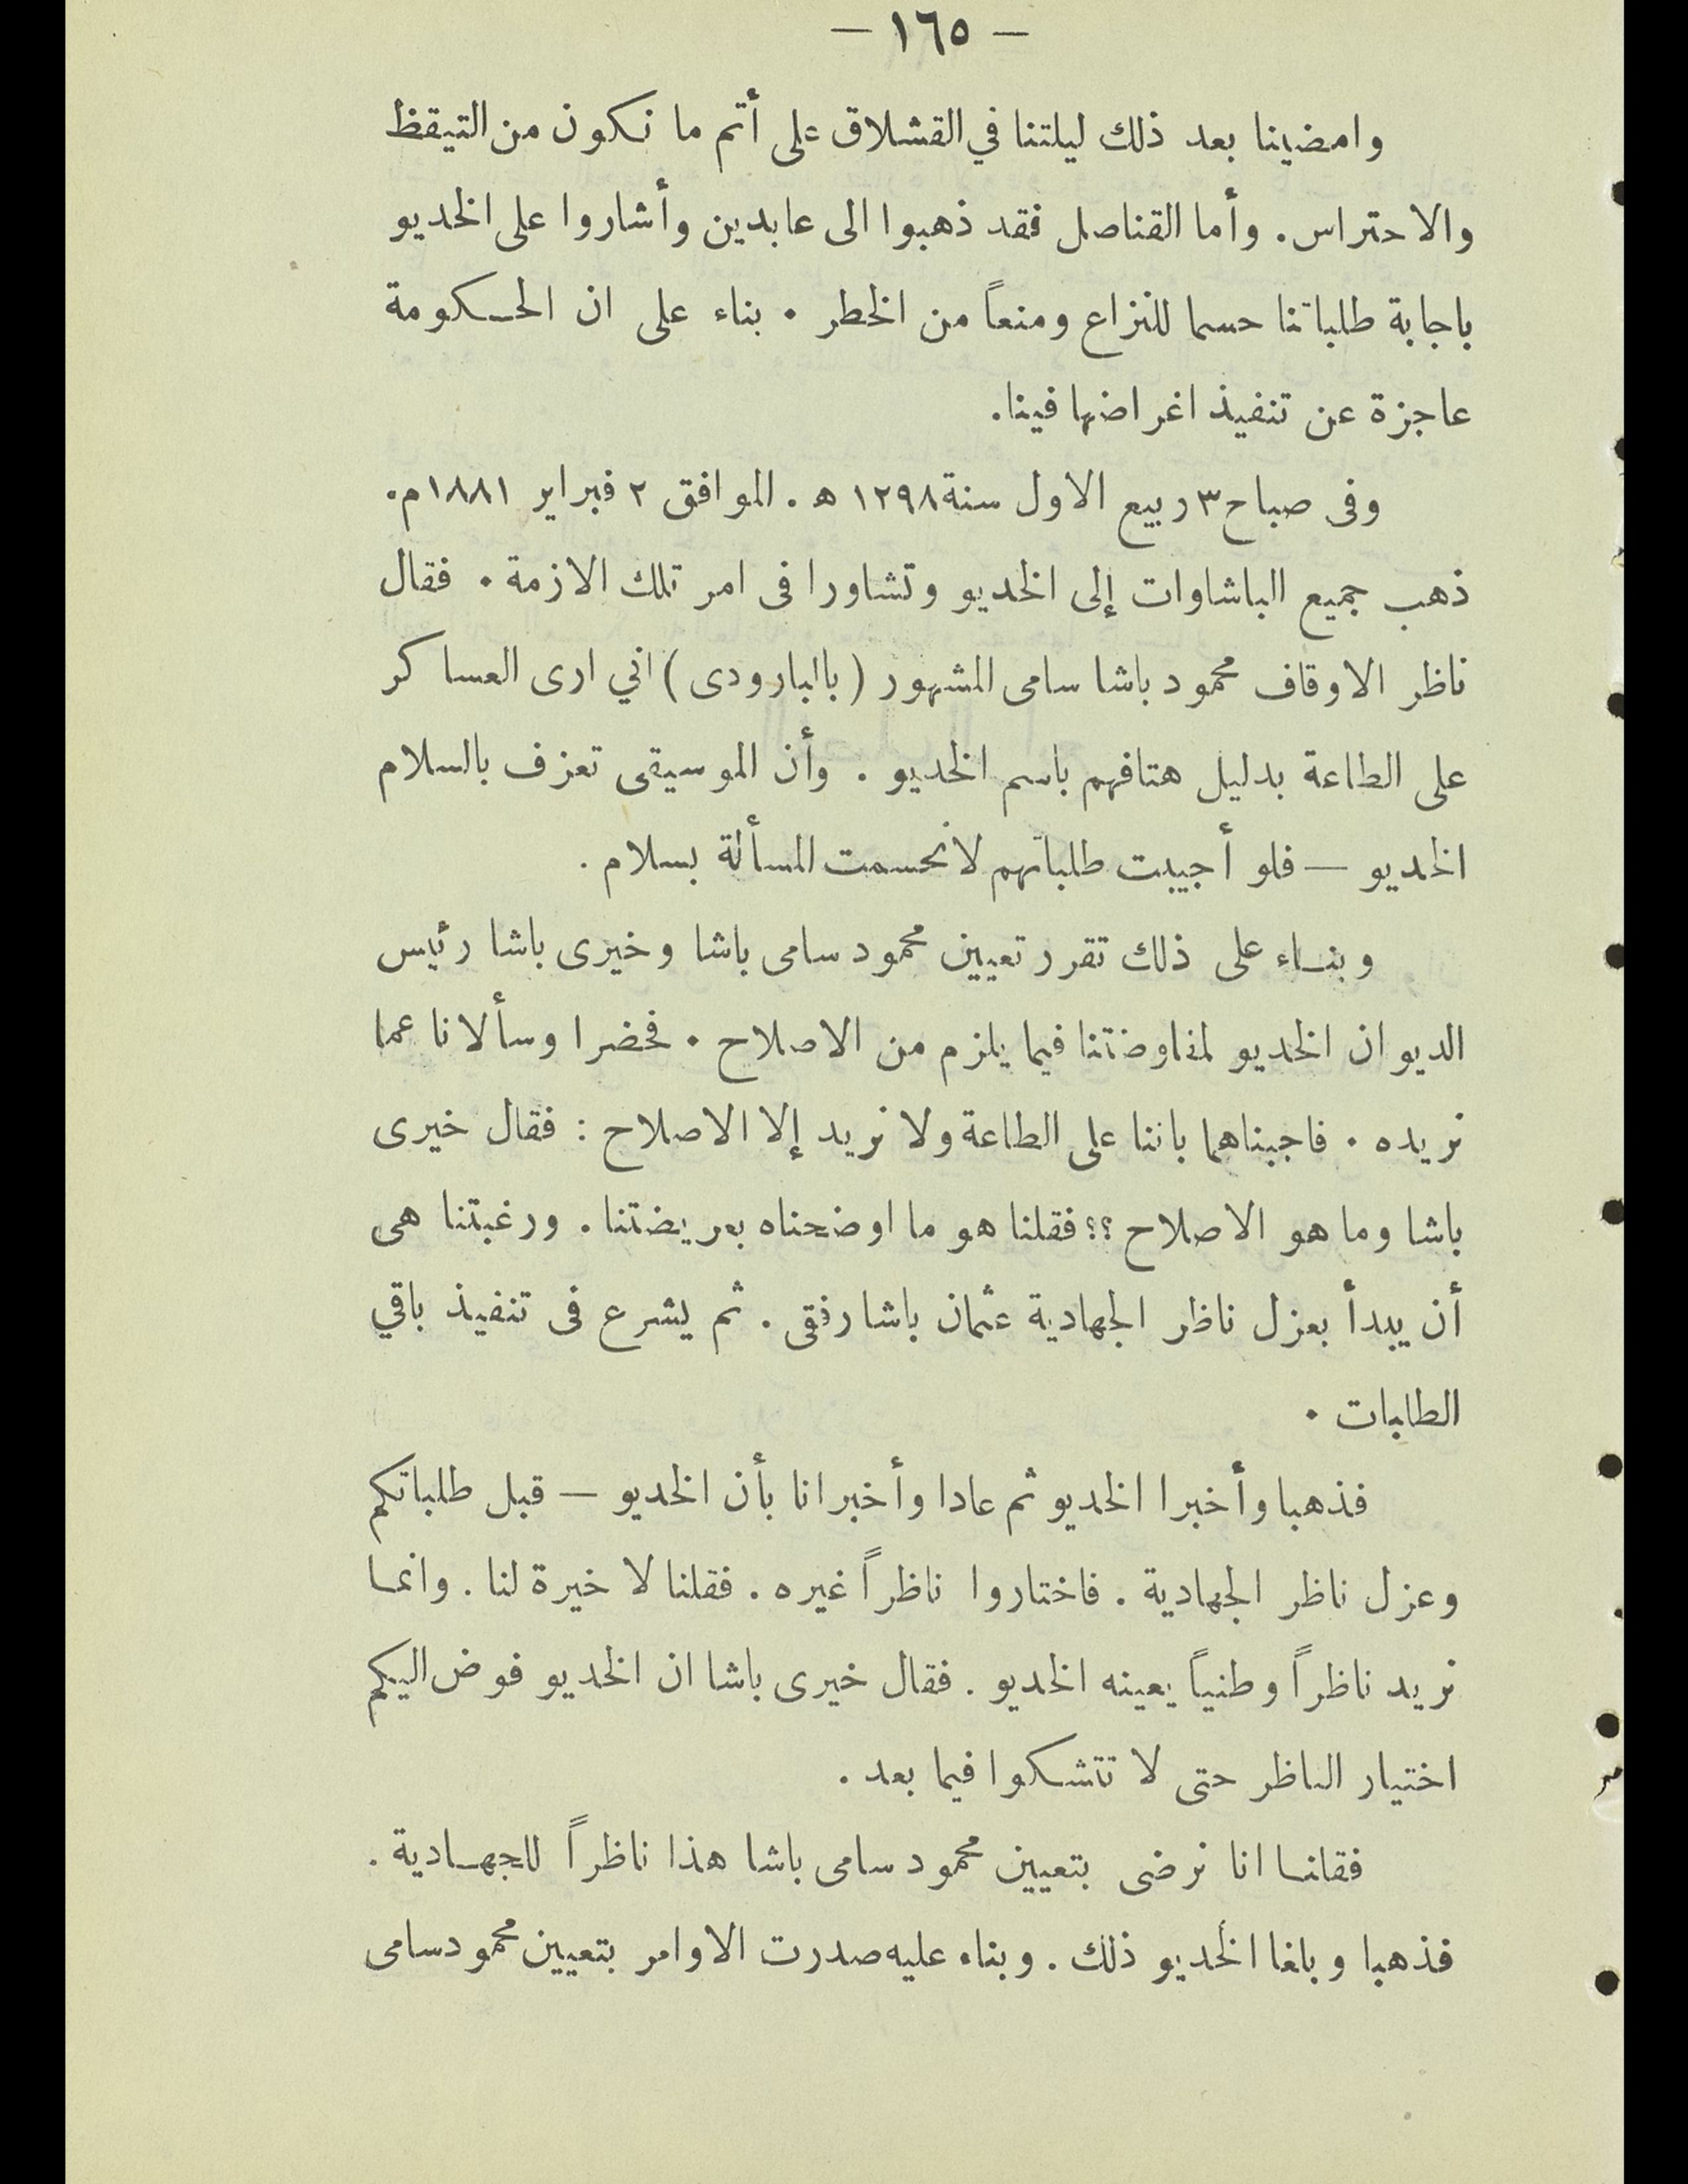 — ١٦٥ —
وامضينا بعد ذلك ليلتنا في القشلاق على أتم ما نكون من التيقظ
والاحتراس. وأما القناصل فقد ذهبوا الى عابدين وأشاروا على الخديو
باجابة طلباتنا حسما للنزاع ومنعاً من الخطر . بناء على ان الحكومة
عاجزة عن تنفيذ اغراضها فينا.
وفى صباح ٣ ربيع الاول سنة ١٢٩٨ ه . الموافق ٢ فبراير ١٨٨١م.
ذهب جميع الباشاوات إلى الخديو وتشاورا فى امر تلك الازمة . فقال
ناظر الاوقاف محمود باشا سامى المشهور ( باالبارودى ) اني ارى العساكر
على الطاعة بدليل هتافهم باسم الخديو . وأن الموسيقى تعزف بالسلام
الخديو — فلو أجيبت طلباتهم لانحسمت المسألة بسلام .
وبناء على ذلك تقرر تعيين محمود سامى باشا وخيرى باشا رئيس
الديوان الخديو لمفاوضتنا فيما يلزم من الاصلاح . فحضرا وسألانا عما
نريده . فاجبناهما باننا على الطاعة ولا نريد إلا الاصلاح : فقال خيرى
باشا وما هو الاصلاح ؟؟ فقلنا هو ما اوضحناه بعريضتنا . ورغبتنا هى
أن يبدأ بعزل ناظر الجهادية عثمان باشا رفقى . ثم يشرع فى تنفيذ باقي
الطلبات .
فذهبا وأخبرا الخديو ثم عادا وأخبرانا بأن الخديو — قبل طلباتكم
وعزل ناظر الجهادية . فاختاروا ناظراً غيره . فقلنا لا خيرة لنا . وانما
نريد ناظراً وطنياً يعينه الخديو . فقال خيرى باشا ان الخديو فوض اليكم
اختيار الناظر حتى لا تتشكوا فيما بعد .
فقلنا انا نرضى بتعيين محمود سامى باشا هذا ناظراً للجهادية .
فذهبا وبلغا الخديو ذلك . وبناء عليه صدرت الاوامر بتعيين محمود سامى